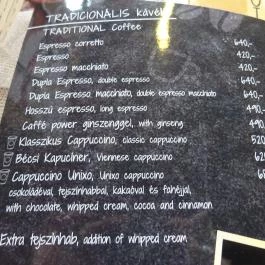 TRADICIONÁLIS kávék
TRADITIONAL Coffee
Espresso corretto 640,-
Espresso 420,-
Espresso macchiato 420,-
Dupla Espresso, double espresso 640,-
Dupla Espresso macchiato, double espresso macchiato 640,-
Hosszú espresso, long espresso 490,-
Caffé power ginszenggel, with ginseng 490,-
Klasszikus Cappuccino, classic cappuccino 520
Bécsi Kapuciner, Viennese cappuccino
Cappuccino Unixo, Unixo cappuccino
csokoládéval, tejszínhabbal, kakaóval és fahéjjal,
with chocolate, whipped cream, cocoa and cinnamon
Extra tejszínhab, addition of whipped cream